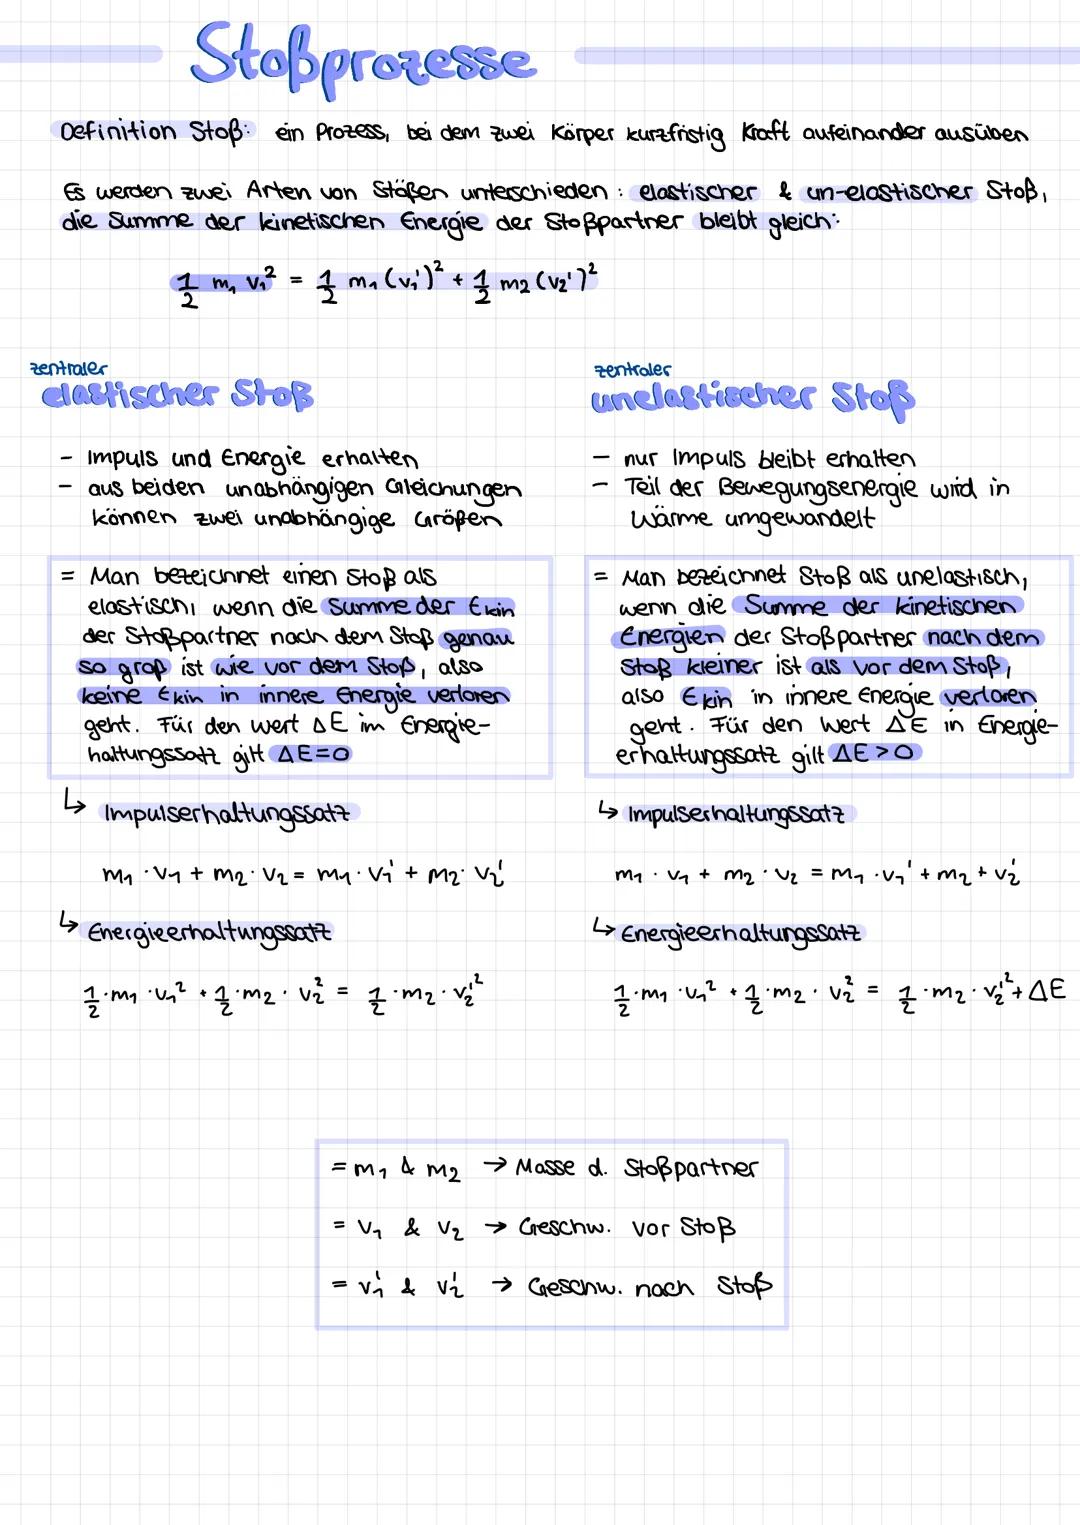 Stoßprozesse
Definition Stoß: ein Prozess, bei dem zwei Körper kurzfristig Kraft aufeinander ausüben
Es werden zwei Arten von Stößen unterschieden: elastischer & un-elastischer Stoß,
die Summe der kinetischen Energie der Stoßpartner bleibt gleich:
1/2 m₁ v₁² = 1/2 m₁ (v₁')² + 1/2 m₂ (v₂')²
zentraler
elastischer Stoß
- Impuls und Energie erhalten
- aus beiden unabhängigen Gleichungen
können zwei unabhängige Größen
= Man bezeichnet einen Stoß als
elastisch, wenn die Summe der Ekin
der Stoßpartner nach dem Stoß genau
so groß ist wie vor dem Stoß, also
keine Ekin in innere Energie verloren
geht. Für den Wert ΔE im Energie-
haltungssatz gilt ΔE=0
↳ Impulserhaltungssatz
m₁ · v₁ + m₂ · v₂ = m₁ · v₁' + m₂ · v₂'
↳ Energieerhaltungssatz
1/2 · m₁ · v₁² + 1/2 · m₂ · v₂² = 1/2 · m₂ · v₂'²
zentraler
unelastischer Stoß
- nur Impuls bleibt erhalten
- Teil der Bewegungsenergie wird in
Wärme umgewandelt
= Man bezeichnet Stoß als unelastisch,
wenn die Summe der kinetischen
Energien der Stoßpartner nach dem
Stoß kleiner ist als vor dem Stoß,
also Ekin in innere Energie verloren
geht. Für den Wert ΔE in Energie-
erhaltungssatz gilt ΔE > 0
↳ Impulserhaltungssatz
m₁ · v₁ + m₂ · v₂ = m₁ · v₁' + m₂ + v₂'
↳ Energieerhaltungssatz
1/2 · m₁ · v₁² + 1/2 · m₂ · v₂² = 1/2 · m₂ · v₂'² + ΔE
= m₁ & m₂ → Masse d. Stoßpartner
= v₁ & v₂ → Geschw. vor Stoß
= v₁' & v₂' → Geschw. nach Stoß